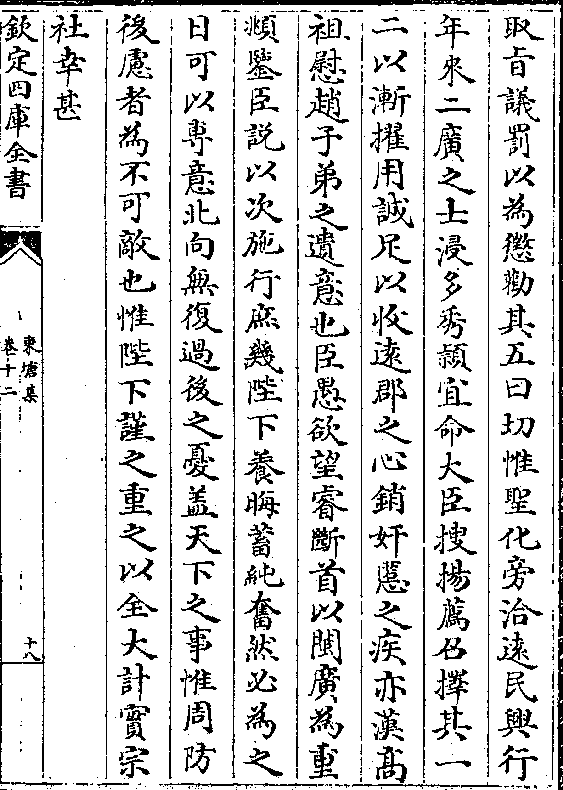 取旨議罰以為懲勸其五曰切惟聖化旁洽遠民興行
年來二廣之士浸多秀頴宜命大臣搜揚薦召擇其一
二以漸擢用誠足以收遠郡之心銷奸慝之疾亦漢髙
祖慰趙子弟之遺意也臣愚欲望睿斷首以閩廣為重
頻鑒臣説以次施行庶幾陛下養晦蓄純奮然必為之
日可以專意北向無復過後之憂盖天下之事惟周防
後慮者為不可敵也惟陛下謹之重之以全大計實宗
社幸甚
欽定四庫全書
東塘集
卷十二
十八